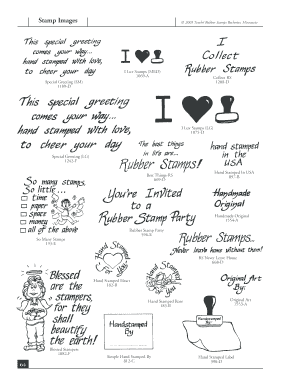 Stamp Images
This special greeting
comes your way...
hand stamped with love,
to cheer your day
Special Greeting (SM)
I
I love Stamps (MED)
I
Collect
Rubber Stamps
Collect RS
This special greeting
comes your way...
hand stamped with love,
to cheer your day
Special Greeting (LG)
I
I love Stamps (LG)
The best things
in life are...
Rubber Stamps!
Best Things RS
hand stamped
in the
USA
Hand Stamped In USA
So many stamps,
So little...
time
paper
space
money
all of the above
So Many Stamps
You're Invited
to a
Rubber Stamp Party
Rubber Stamp Party
Handmade
Original
Handmade Original
Rubber Stamps...
Never leave home without them!
RS Never Leave Home
Blessed
are the
stampers,
for they
shall
beautify
the earth!
Blessed Stampers
Hand Stamped
By
Hand Stamped Heart
Hand Stamped
By
Hand Stamped Bear
Original Art
By:
Original Art
Handstamped
By:
Simple Hand Stamped By
Hand Stamped Label